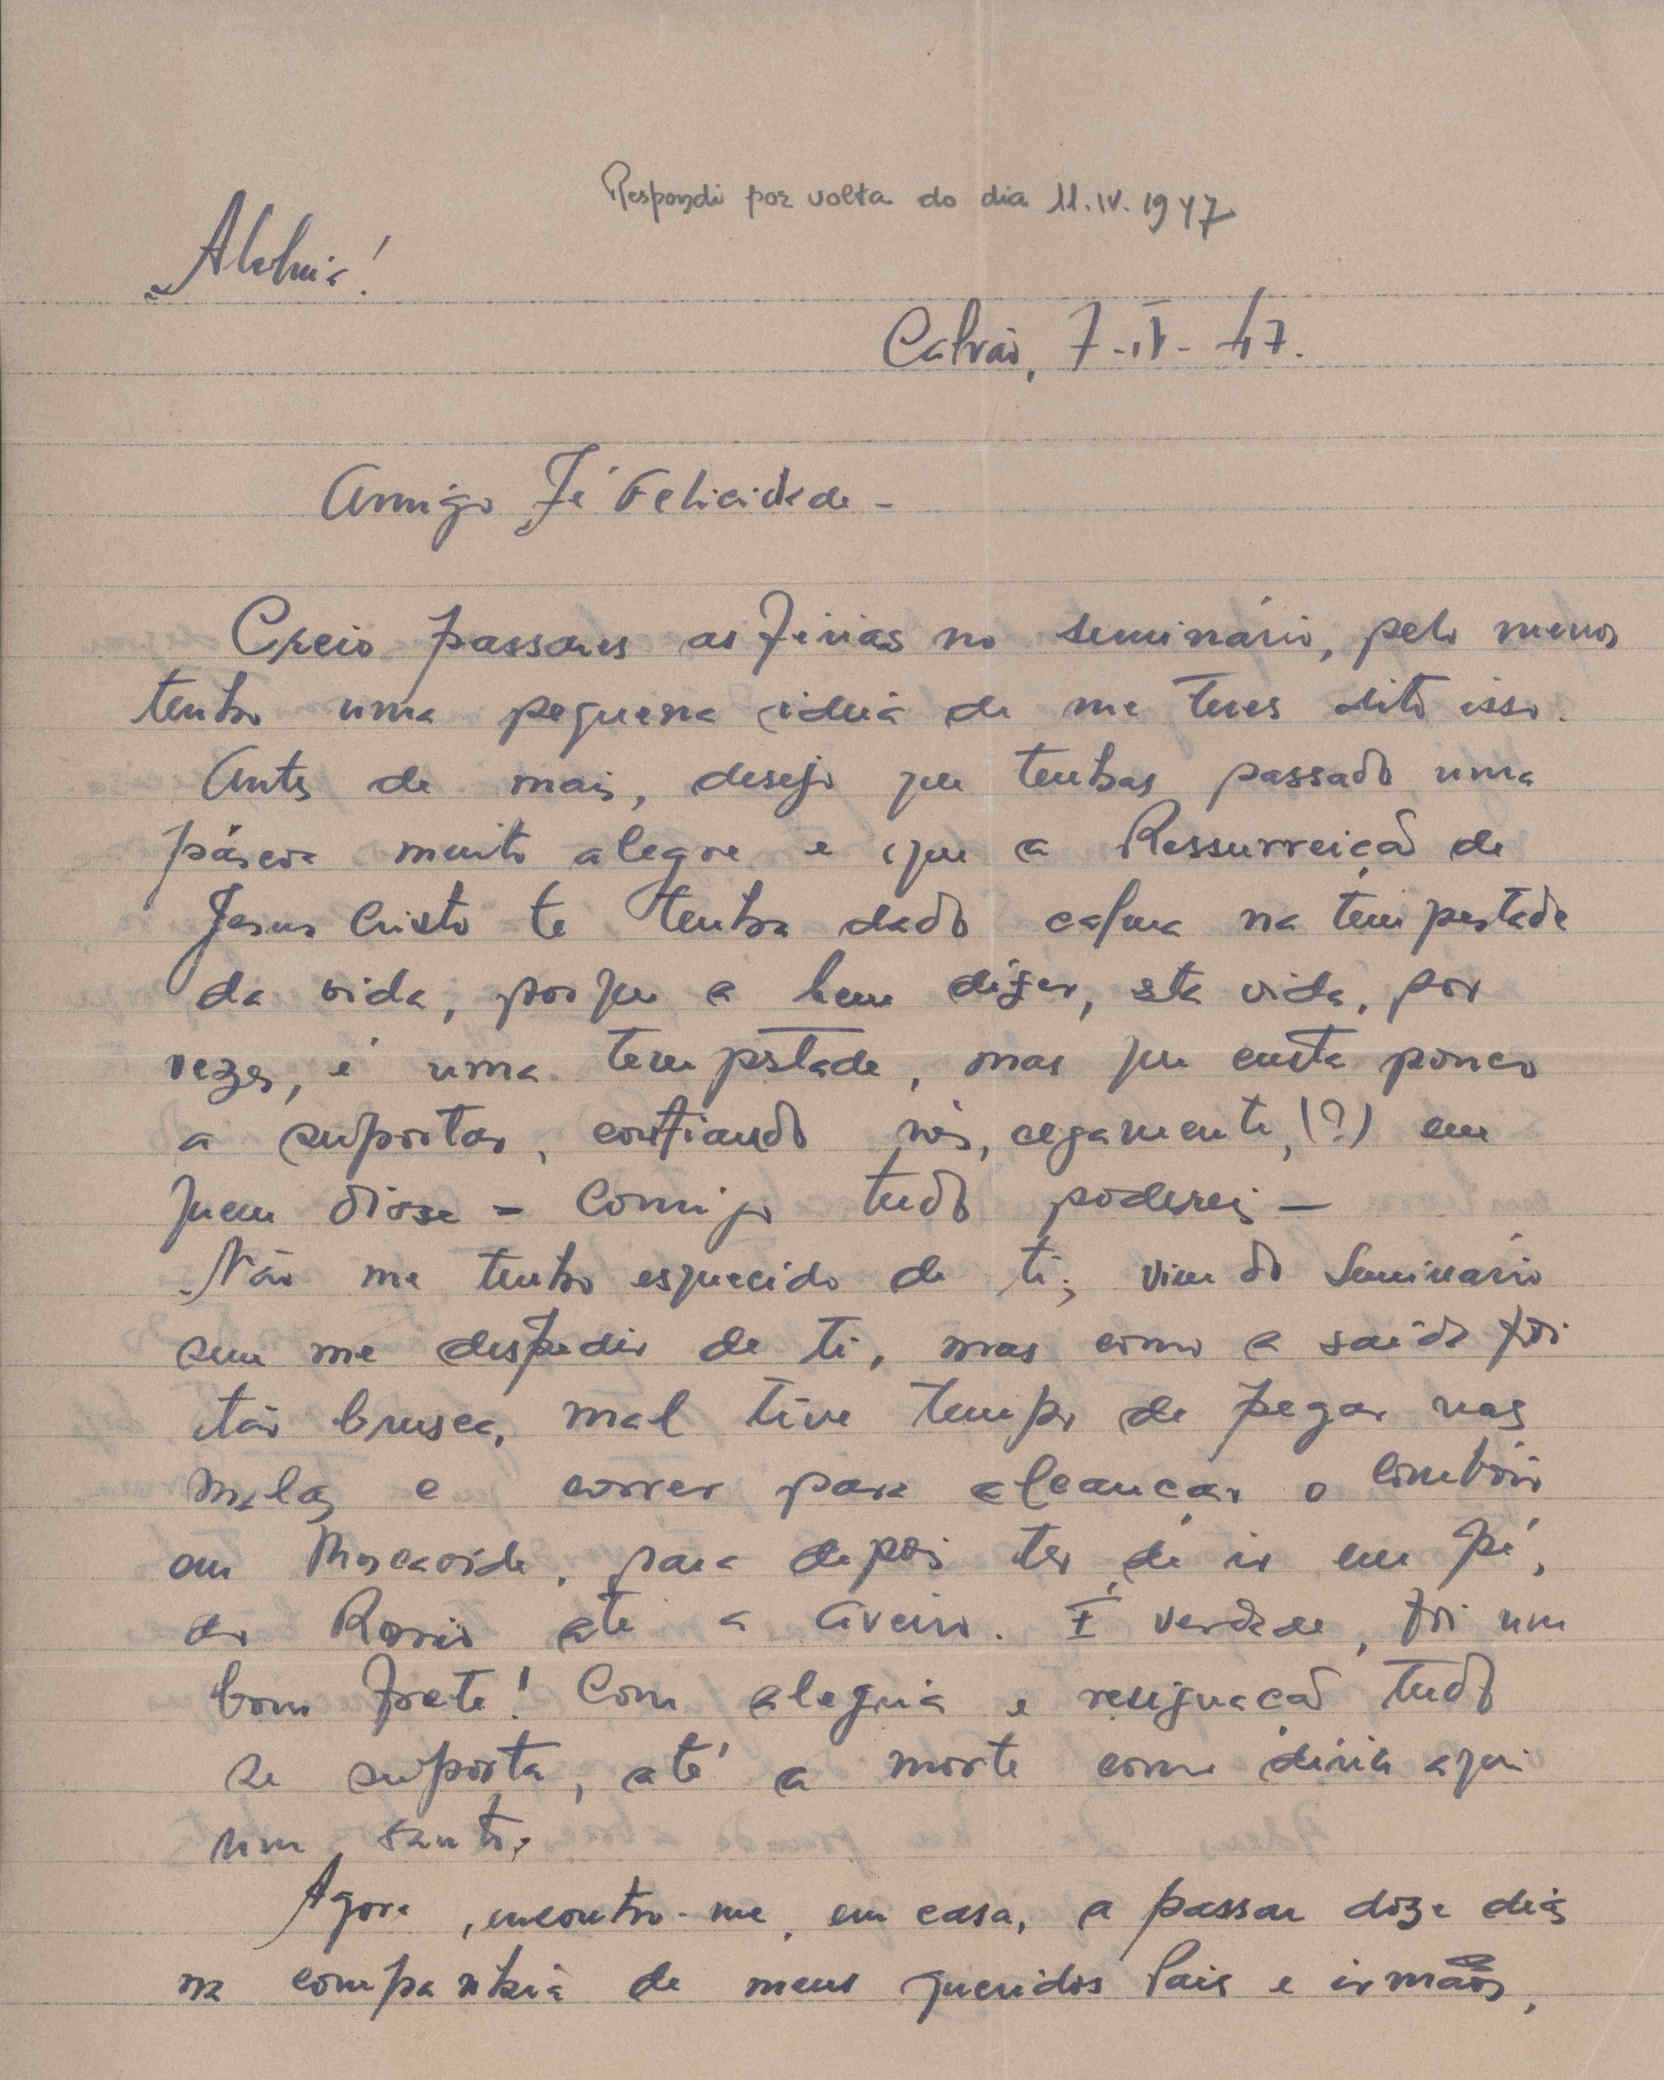 Respondi por volta do dia 11.IV.1947
Aleluia!
Calvão, 7-IV-47.
Amigo Zé Felicidade -
Creio passares as férias no seminário, pelo menos
tenho uma pequena ideia de me teres dito isso.
Antes de mais, desejo que tenhas passado uma
páscoa muito alegre e que a Ressurreição de
Jesus Cristo te tenha dado calma na tempestade
da vida, porque a bem dizer, esta vida, por
vezes, é uma tempestade, mas que custa pouco
a suportar, confiando nós, cegamente, (?) em
quem disse - Comigo tudo podereis -
Não me tenho esquecido de ti; vim do Seminário
sem me despedir de ti, mas como a saída foi
tão brusca, mal tive tempo de pegar nas
malas e correr para alcançar o comboio
em Moscavide, para depois ter de ir em pé,
do Rossio até a Aveiro. É verdade, foi um
bom frete! Com alegria e resignação tudo
se suporta, até a morte como diria aqui
um santo.
Agora, encontro-me, em casa, a passar doze dias
na companhia de meus queridos Pais e irmãos,